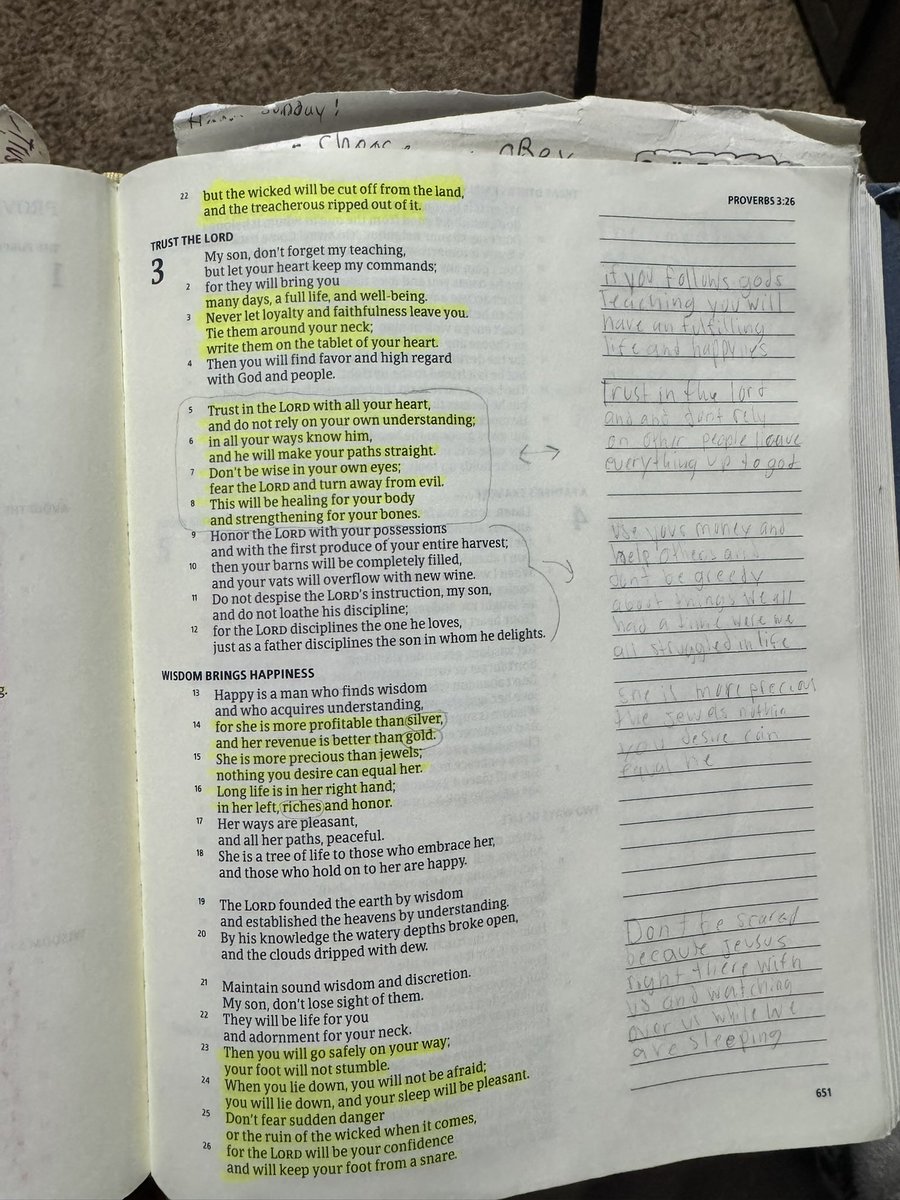 Sunday!
22 but the wicked will be cut off from the land,
and the treacherous ripped out of it.
PROVERBS 3:26
TRUST THE LORD
3 My son, don't forget my teaching,
but let your heart keep my commands;
2 for they will bring you
many days, a full life, and well-being.
3 Never let loyalty and faithfulness leave you.
Tie them around your neck;
write them on the tablet of your heart.
4 Then you will find favor and high regard
with God and people.
5 Trust in the LORD with all your heart,
and do not rely on your own understanding;
6 in all your ways know him,
and he will make your paths straight.
7 Don't be wise in your own eyes;
fear the LORD and turn away from evil.
8 This will be healing for your body
and strengthening for your bones.
9 Honor the LORD with your possessions
and with the first produce of your entire harvest;
10 then your barns will be completely filled,
and your vats will overflow with new wine.
11 Do not despise the LORD's instruction, my son,
and do not loathe his discipline;
12 for the LORD disciplines the one he loves,
just as a father disciplines the son in whom he delights.
WISDOM BRINGS HAPPINESS
13 Happy is a man who finds wisdom
and who acquires understanding,
14 for she is more profitable than silver,
and her revenue is better than gold.
15 She is more precious than jewels;
nothing you desire can equal her.
16 Long life is in her right hand;
in her left, riches and honor.
17 Her ways are pleasant,
and all her paths, peaceful.
18 She is a tree of life to those who embrace her,
and those who hold on to her are happy.
19 The LORD founded the earth by wisdom
and established the heavens by understanding.
20 By his knowledge the watery depths broke open,
and the clouds dripped with dew.
21 Maintain sound wisdom and discretion.
My son, don't lose sight of them.
22 They will be life for you
and adornment for your neck.
23 Then you will go safely on your way;
your foot will not stumble.
24 When you lie down, you will not be afraid;
you will lie down, and your sleep will be pleasant.
25 Don't fear sudden danger
or the ruin of the wicked when it comes,
26 for the LORD will be your confidence
and will keep your foot from a snare.
if you follows gods
teaching you will
have an fulfilling
life and happyies
trust in the lord
and and dont rely
on other people leave
everything up to god
use yous money and
help others and
dont be greedy
about things we all
had a time were we
all struggled in life
She is more precious
the jewels nothin
you desire can
equal he
Dont be scared
because Jevsus
right there with
us and watching
over us while we
are sleeping
651